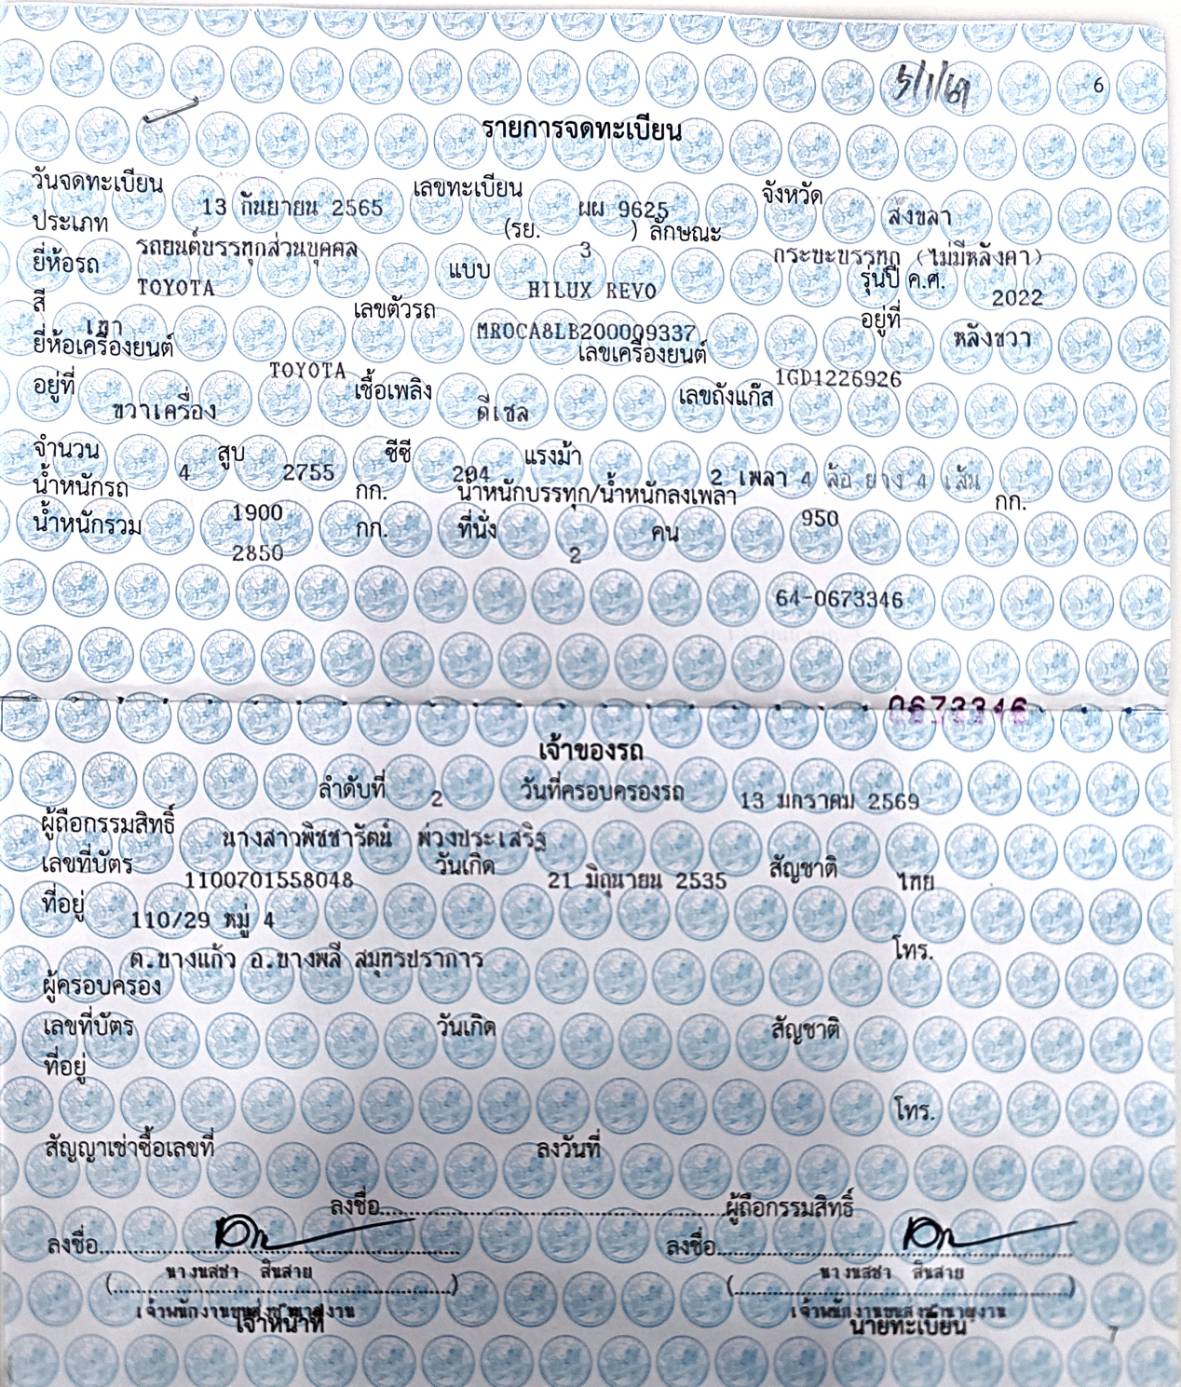 5/1/69
6
รายการจดทะเบียน
วันจดทะเบียน 13 กันยายน 2565 เลขทะเบียน ผผ 9625 จังหวัด สงขลา
ประเภท รถยนต์บรรทุกส่วนบุคคล (รย. 3 ) ลักษณะ กระบะบรรทุก (ไม่มีหลังคา)
ยี่ห้อรถ TOYOTA แบบ HILUX REVO รุ่นปี ค.ศ. 2022
สี เทา เลขตัวรถ MR0CA8LB200009337 อยู่ที่ หลังขวา
ยี่ห้อเครื่องยนต์ TOYOTA เลขเครื่องยนต์ 1GD1226926
อยู่ที่ ขวาเครื่อง เชื้อเพลิง ดีเซล เลขถังแก๊ส
จำนวน 4 สูบ 2755 ซีซี 204 แรงม้า 2 เพลา 4 ล้อ ยาง 4 เส้น
น้ำหนักรถ 1900 กก. น้ำหนักบรรทุก/น้ำหนักลงเพลา 950 กก.
น้ำหนักรวม 2850 กก. ที่นั่ง 2 คน
64-0673346
0673346
เจ้าของรถ
ลำดับที่ 2 วันที่ครอบครองรถ 13 มกราคม 2569
ผู้ถือกรรมสิทธิ์ นางสาวพิชชารัตน์ พ่วงประเสริฐ
เลขที่บัตร 1100701558048 วันเกิด 21 มิถุนายน 2535 สัญชาติ ไทย
ที่อยู่ 110/29 หมู่ 4
ต.บางแก้ว อ.บางพลี สมุทรปราการ โทร.
ผู้ครอบครอง
เลขที่บัตร วันเกิด สัญชาติ
ที่อยู่
โทร.
สัญญาเช่าซื้อเลขที่ ลงวันที่
ลงชื่อ ผู้ถือกรรมสิทธิ์
ลงชื่อ ลงชื่อ
( สินสาย ) ( สินสาย )
เจ้าพนักงานขนส่งชำนาญงาน เจ้าพนักงานขนส่งชำนาญงาน
เจ้าหน้าที่ นายทะเบียน
7